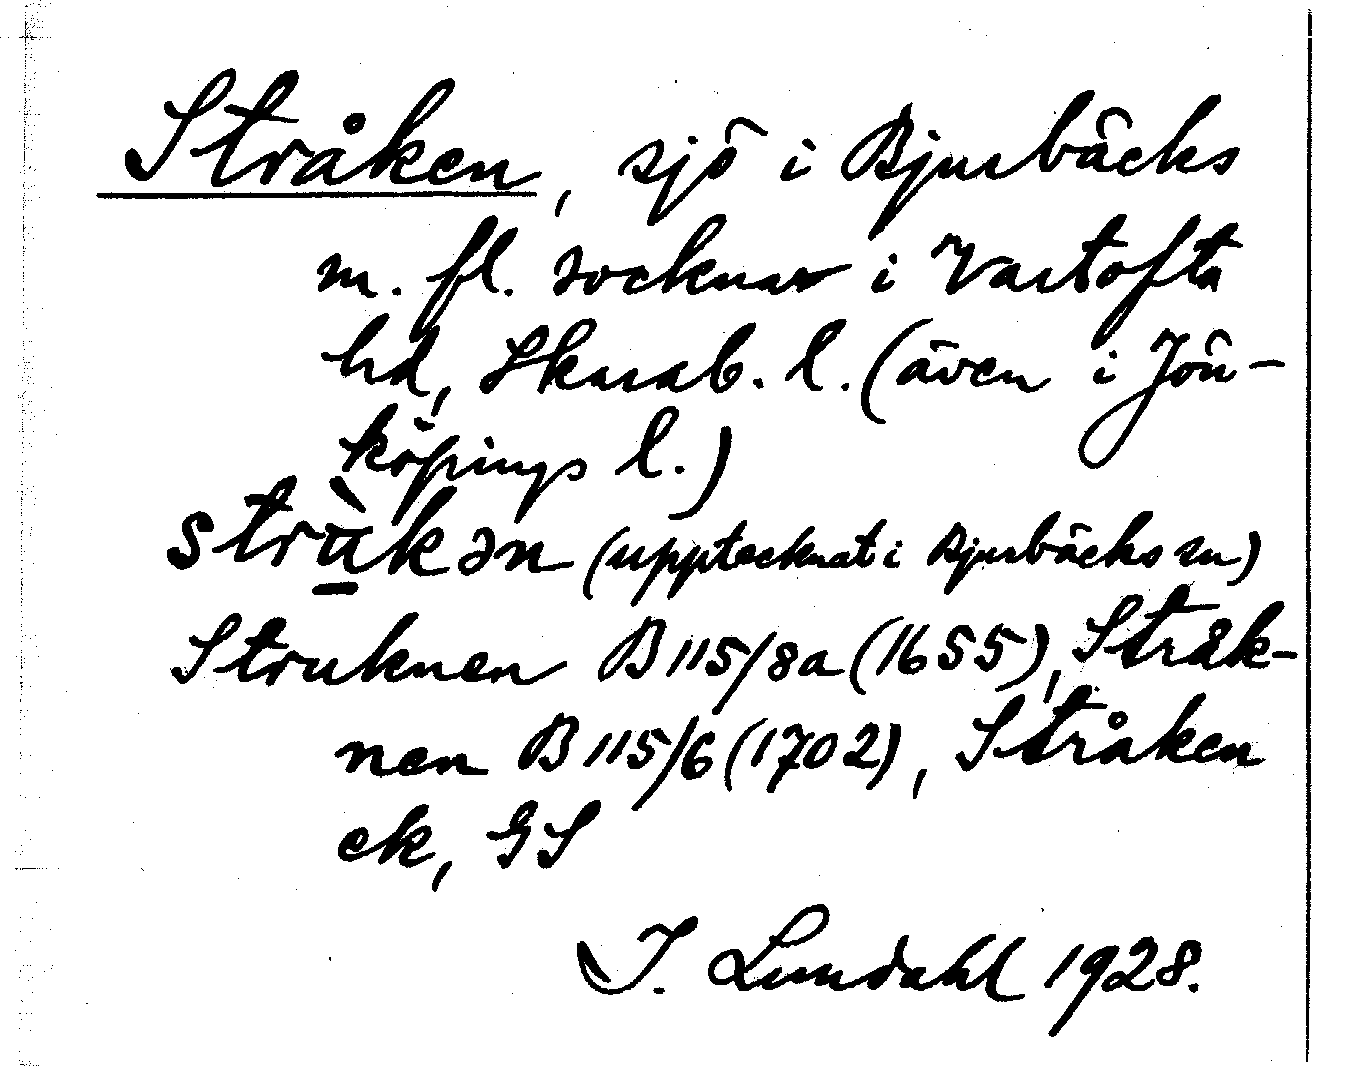 Stråken, sjö i Bjurbäcks
m. fl. socknar i Vartofta
hd, Skarab. l. (även i Jön-
köpings l.)
strὰ̱kən (upptecknat i Bjurbäcks sn)
Struknen B 115/8a (1655), Stråk-
nen B 115/6 (1702), Stråken
ek, GS
I. Lundahl 1928.